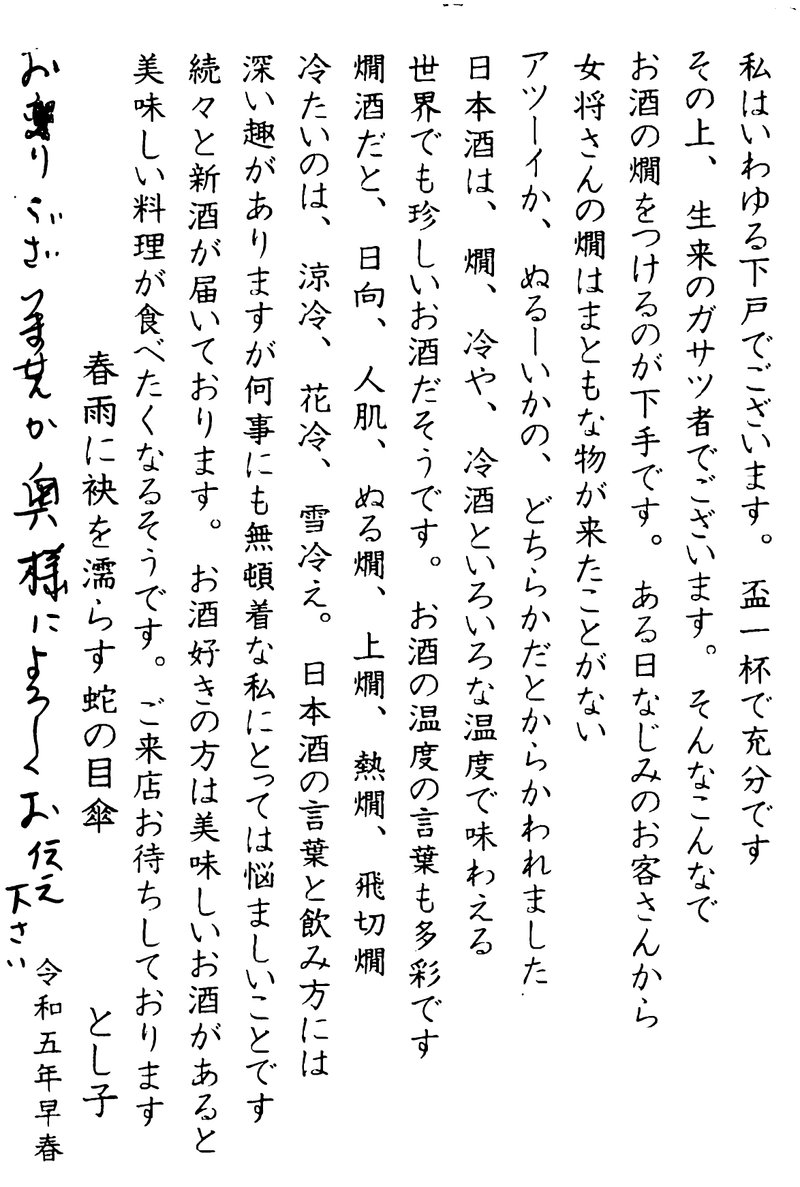 私はいわゆる下戸でございます。 盃一杯で充分です
その上、 生来のガサツ者でございます。 そんなこんなで
お酒の燗をつけるのが下手です。 ある日なじみのお客さんから
女将さんの燗はまともな物が来たことがない
アツーイか、 ぬるーいかの、 どちらかだとからかわれました
日本酒は、 燗、 冷や、 冷酒といろいろな温度で味わえる
世界でも珍しいお酒だそうです。 お酒の温度の言葉も多彩です
燗酒だと、 日向、 人肌、 ぬる燗、 上燗、 熱燗、 飛切燗
冷たいのは、 涼冷、 花冷、 雪冷え。 日本酒の言葉と飲み方には
深い趣がありますが何事にも無頓着な私にとっては悩ましいことです
続々と新酒が届いております。 お酒好きの方は美味しいお酒があると
美味しい料理が食べたくなるそうです。 ご来店お待ちしております
春雨に袂を濡らす蛇の目傘 とし子
令和五年早春
お変りございませんか 奥様によろしくお伝え
下さい